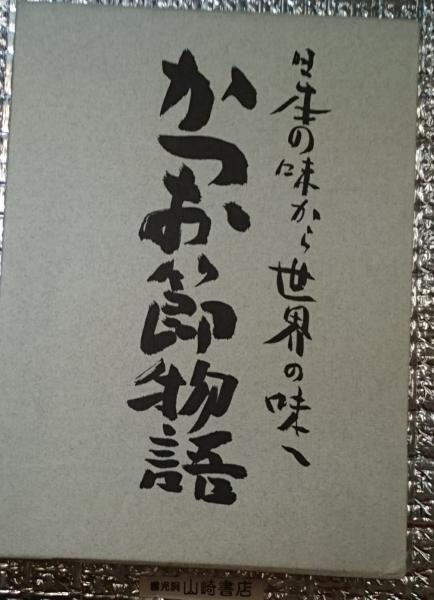 日本の味から世界の味へ
かつお節物語
山崎書店